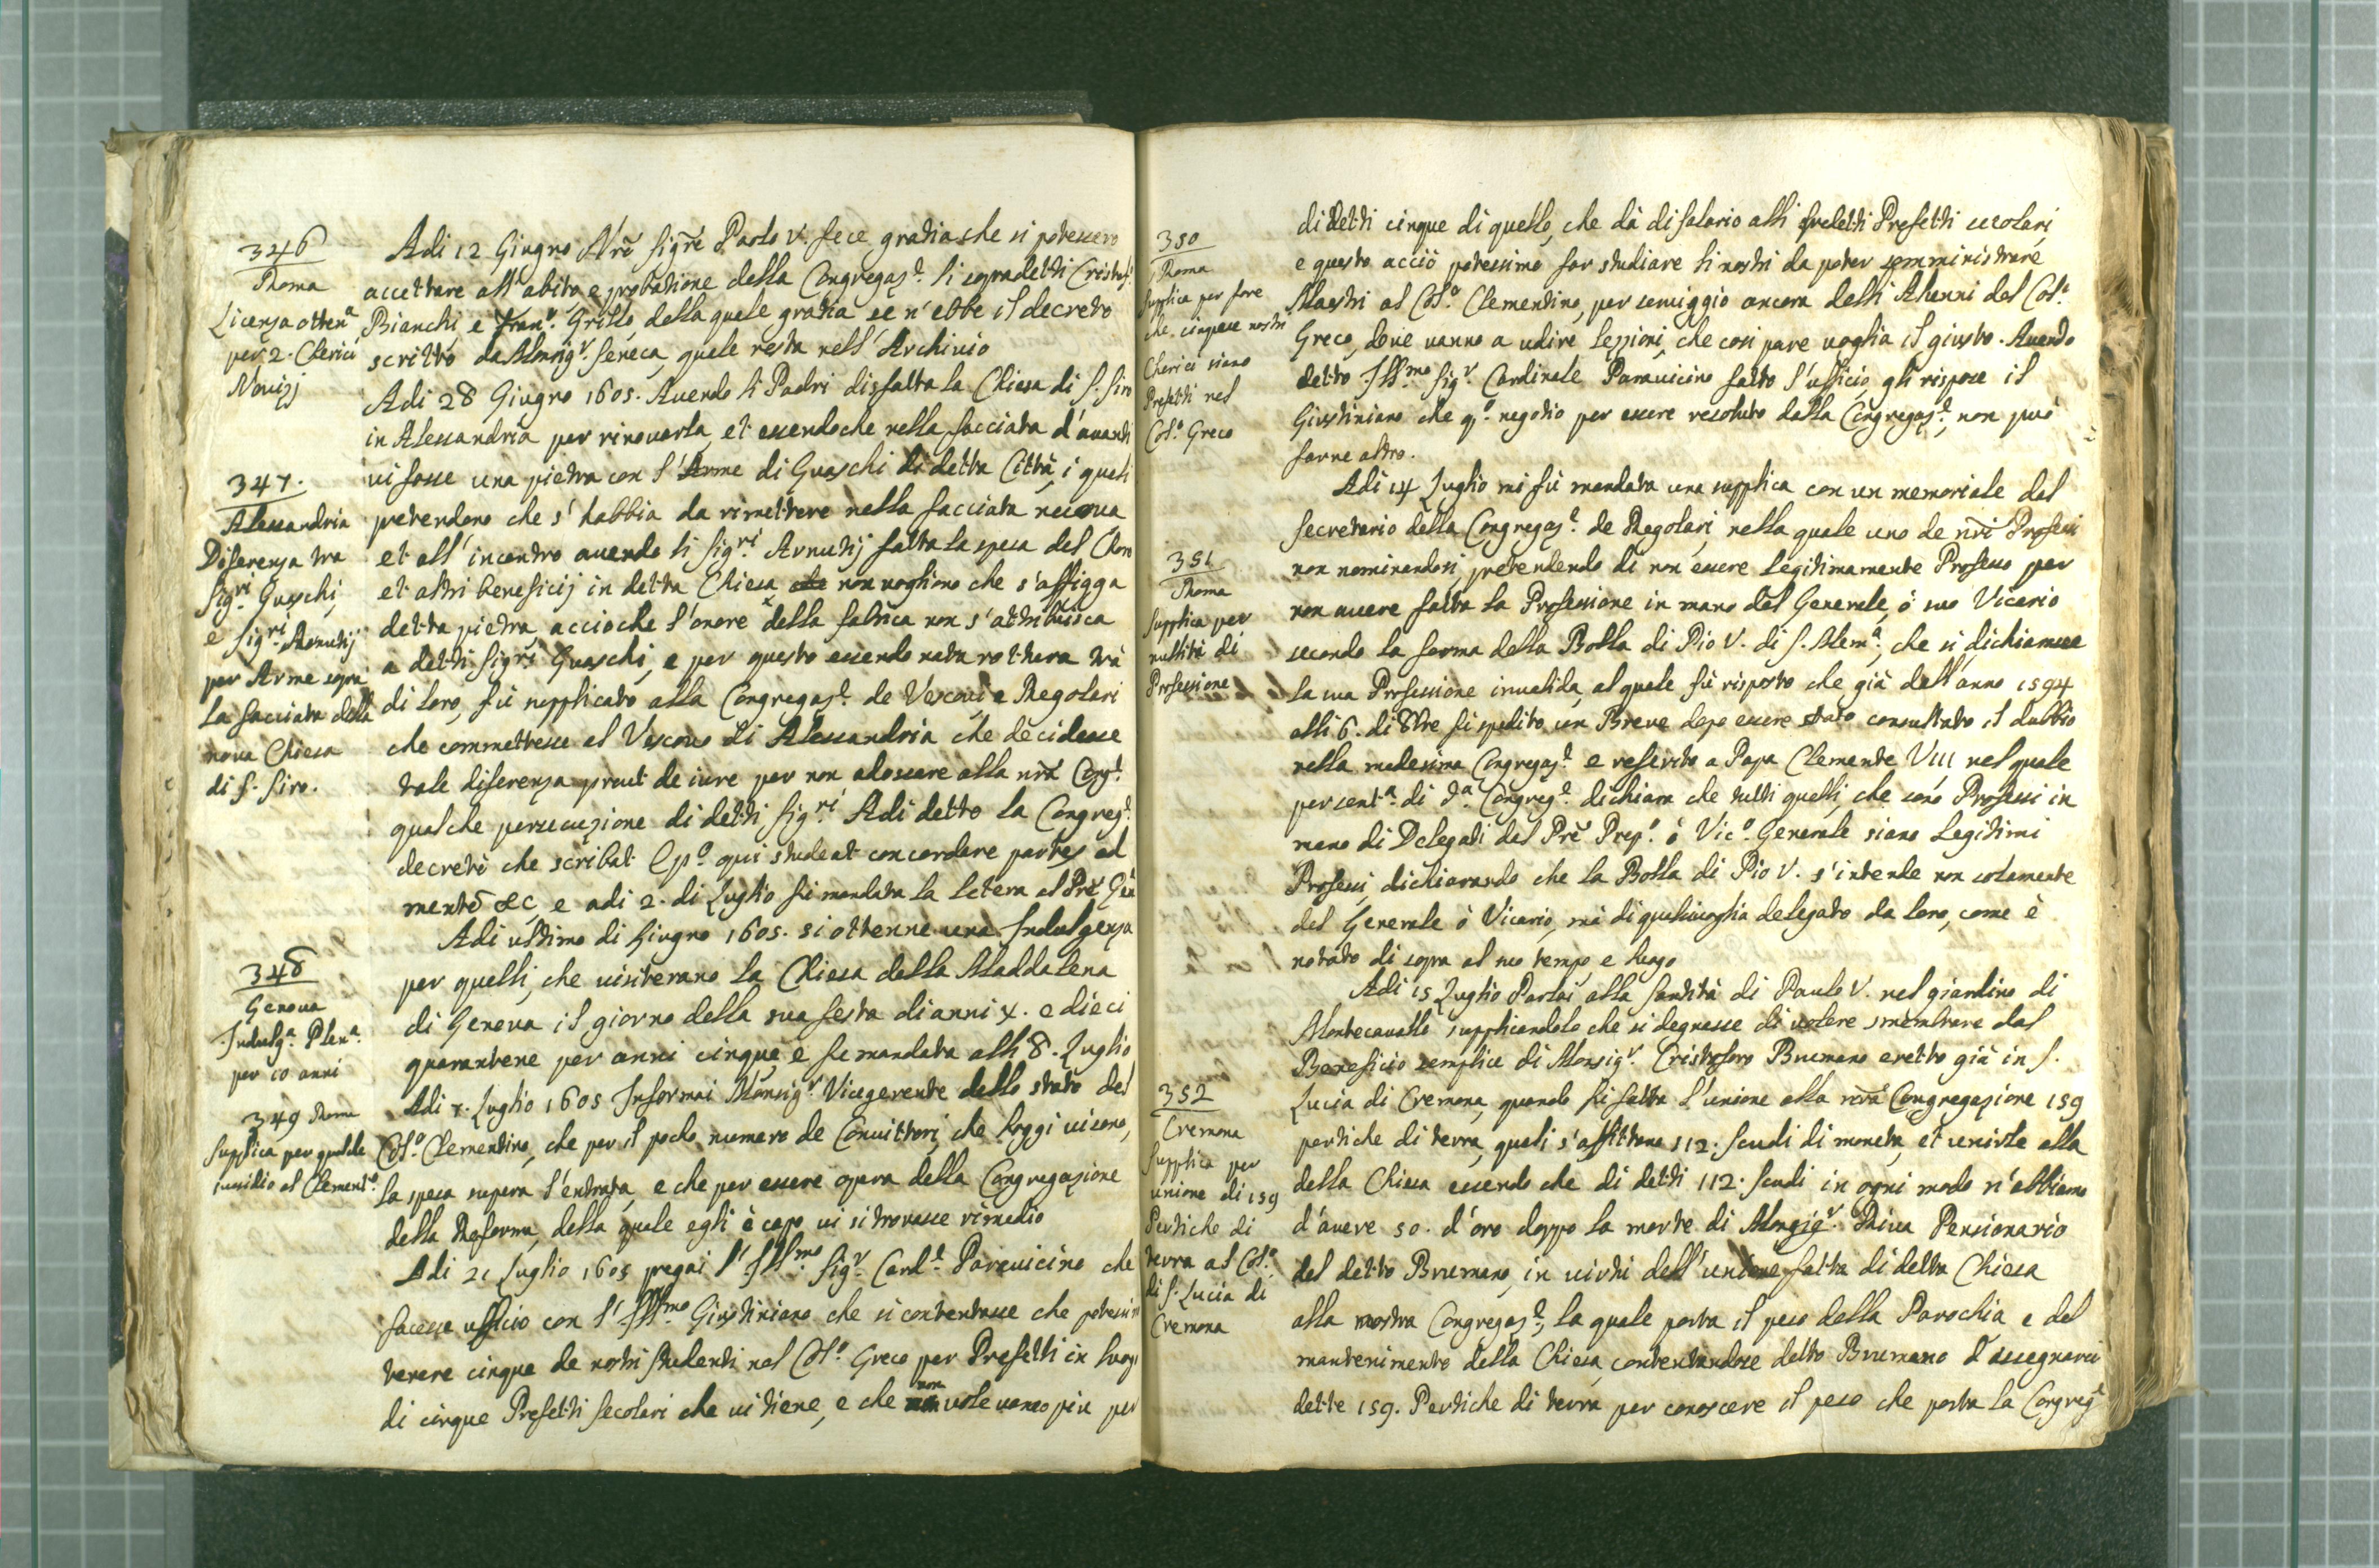 346
Roma
Licenza otten.ª
per 2. Clerici
Novizj
Adi 12 Giugno Nrõ Sigrẽ Paolo V. fece gratia che si potessero
accettare all'abito e probatione della Congregaz.e li sopradetti Cristof.
Bianchi, e Fran.º Grillo, della quale gratia se n'ebbe il decreto
scritto da Monsig.r Seneca, quale resta nell'Archivio
Adi 28 Giugno 1605. Avendo li Padri disfatta la Chiesa di S. Siro
in Alessandria per rinovarla, et essendoche nella facciata d'avanti
vi fosse una pietra con l'Arme di Guaschi di detta Città, i quali
347.
Alessandria
Diferenza tra
Sig.ri Guaschi,
e Sig.ri Arnutij
per Arme sopra
la facciata della
nova Chiesa
di S. Siro.
pretendono che s'habbia da rimettere nella facciata nuova
et all'incontro avendo li Sig.ri Arnutij fatta la spesa del Choro
et altri beneficij in detta Chiesa che non vogliono che s'affigga
detta pietra, accioche l'onore della fabrica non s'attribuisca
a detti Sig.ri Guaschi, e per questo essendo nata rottura trà
di loro, fù supplicato alla Congregaz.e de Vescovi e Regolari
che commettesse al Vescovo di Alessandria che decidesse
tale diferenza prout de iure per non adossare alla nrã Cong.e
qualche persecuzione di detti Sig.ri Adi detto la Congreg.e
decretò che scribat Ep.º qui studeat concordare partes ad
mentẽ &c, e adi 2. di Luglio fù mandata la letera al Prẽ Gen
348
Genova
Indulg.ª Plen.ª
per 10 anni
Adi ultimo di Giugno 1605. si ottenne una Indulgenza
per quelli, che visiterano la Chiesa della Maddalena
di Genova il giorno della sua festa di anni X. e dieci
quarantene per anni cinque, e fù mandata alli 8. Luglio
349 Roma
Supplica per qualche
sussidio al Clement.º
Adi 7. Luglio 1605 Informai Monsig.r Vicegerente dello stato del
Col.º Clementino, che per il poco numero de Convittori, che hoggi vi sono,
la spesa supera l'entrata, e che per essere opera della Congregazione
della Reforma, della quale egli è capo, vi si trovasse rimedio
Adi 21 Luglio 1605 pregai l'Ill.mo Sig.r Card.le Paravicino che
facesse ufficio con l'Ill.mo Giustiniano che si contentasse che potessimo
tenere cinque de nostri studenti nel Col.º Greco per Prefetti in luogo
di cinque Prefetti secolari che vi tiene, e che non volevamo più per
350
Roma
Supplica per fare
che cinque nostri
Cherici siano
Prefetti nel
Col.º Greco
di detti cinque di quello, che dà di salario alli predetti Prefetti secolari,
e questo acciò potessimo far studiare li nostri da poter somministrare
Maestri al Col.º Clementino, per serviggio ancora delli Alunni del Col.º
Greco, dove vanno a udire lezzioni, che così pare voglia il giusto. Avendo
detto Ill.mo Sig.r Cardinale Paravicino fatto l'ufficio, gli rispose il
Giustiniano che q.º negotio per essere resoluto dalla Congregaz.e, non può
farne altro.
351
Roma
Supplica per
nullità di
Professione
Adi 14 Luglio mi fù mandata una supplica con un memoriale dal
Secretario della Congregaz.e de Regolari, nella quale uno de nrĩ Professi
non nominandosi, pretendendo di non essere legitimamente Professo per
non avere fatta la Professione in mano del Generale, ò suo Vicario
secondo la forma della Bolla di Pio V. di S. Mem.ª, che si dichiarasse
la sua Professione invalida, al quale fù risposto che già dall'anno 1594
alli 6. di 8bre fù spedito un Breve dopo essere stato consultato il dubbio
nella medesima Congregaz.e e referito a Papa Clemente VIII nel quale
per sent.ª di d.ª Congreg.e dichiara che tutti quelli, che sono Professi in
mano di Delegati del Prẽ Prep.º ò Vic.º Generale siano Legitimi
Professi, dichiarando che la Bolla di Pio V. s'intende non solamente
del Generale ò Vicario, mà di qualsivoglia delegato da loro, come è
notato di sopra al suo tempo, e luogo
352
Cremona
Supplica per
unione di 159
Pertiche di
terra al Col.º
di S. Lucia di
Cremona
Adi 15 Luglio Parlai alla Santità di Paulo V. nel giardino di
Montecavallo supplicandolo che si degnasse di volere smembrare dal
Beneficio semplice di Monsig.r Cristoforo Brumano eretto già in S.
Lucia di Cremona, quando fù fatta l'unione alla nrã Congregazione 159
pertiche di terra, quali s'affittano 112. scudi di moneta, et unirle alla
della Chiesa essendo che di detti 112. scudi in ogni modo n'abbiamo
d'avere 50. d'oro doppo la morte di Monsig.r Riva Pensionario
del detto Brumano, in virtù dell'unione fatta di detta Chiesa
alla nostra Congregaz.e, la quale porta il peso della Parochia e del
mantenimento della Chiesa, contentandose detto Brumano d'assegnarci
dette 159. Pertiche di terra per conoscere il peso che porta la Congreg.e